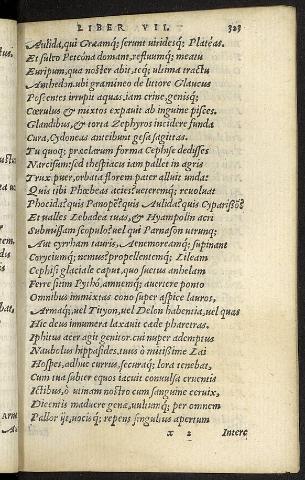 LIBER VII. 323
Aulida, qui Graeamq; serunt viridesq; Plateas.
Et sulco Peteona domant, refluumq; meatu
Euripum, qua noster abit, teq; ultima tractu
Anthedon, ubi gramineo de littore Glaucus
Poscentes irrupit aquas, iam crine, genisq;
Cœrulus & mixtos expauit ab inguine pisces.
Glandibus, & torta Zephyros incidere funda
Cura, Cydoneas anteibunt gesa sagittas.
Tu quoq; praeclarum forma Cephise dedisses
Narcisum: sed thespiacis iam pallet in agris
Trux puer, orbata florem pater alluit unda:
Quis tibi Phœbeas acies ueteremq; reuoluat
Phocida: quis Panopēq: quis Aulida: quis Cyparisōq;
Et ualles Lebadea tuas, & Hyampolin acri
Submissam scopulo: uel qui Parnason utrunq;
Aut cyrrham tauris, Anemoreamq: supinant
Coryciumq; nemus: propellentemq; Lileam
Cephisi glaciale caput, quo suetus anhelam
Ferre sitim Pythō, amnemq; auertere ponto
Omnibus immixtas cono super aspice lauros,
Armaq; uel Tityon, uel Delon habentia, uel quas
Hic deus innumera laxauit cæde pharetras.
Iphitus acer agit gentior. cui nuper ademptus
Naubolus hippasides, tuus ô mitissime Lai
Hospes, adhuc currus, securaq; lora tenebat,
Cum tua subter equos iacuit conuulsa cruentis
Ictibus, ô utinam nostro cum sanguine ceruix,
Dicentis maduere genæ, uultumq; per omnem
Pallor ijt, uocisq; repens singultus apertum
x 2 Interc